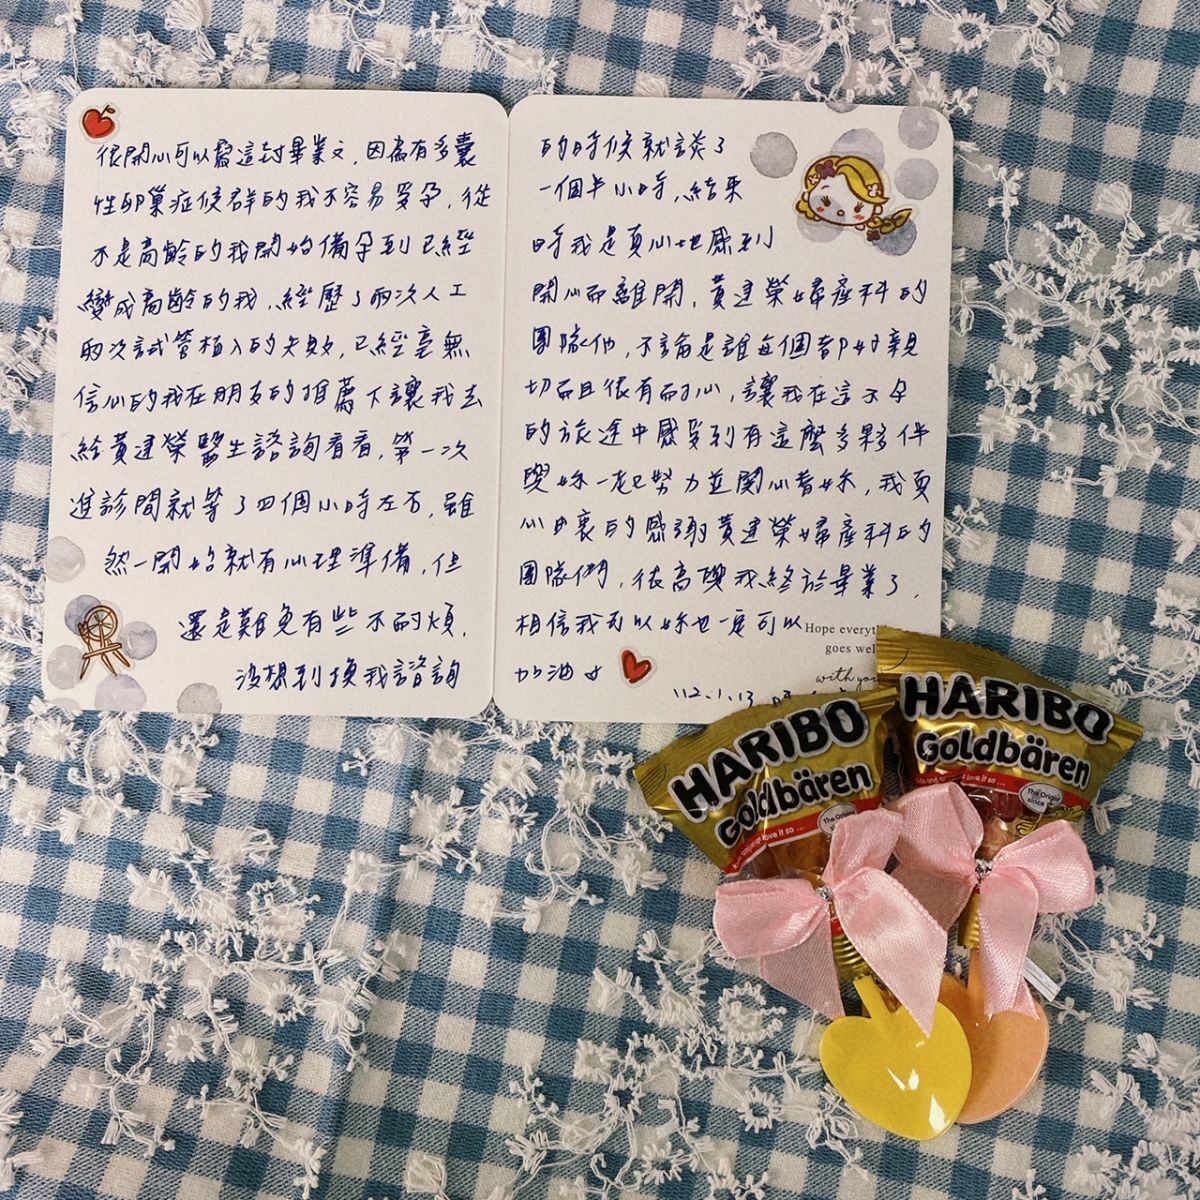 很開心可以寫這封畢業文，因為有多囊
性卵巢症候群的我不容易受孕，從
不是高齡的我開始備孕到已經
變成高齡的我，經歷了兩次人工
兩次試管植入的失敗，已經毫無
信心的我在朋友的推薦下讓我去
給黃建榮醫生諮詢看看，第一次
進診間就等了四個小時左右，雖
然一開始就有心理準備，但
還是難免有些不耐煩，
沒想到換我諮詢
的時候就談了
一個半小時，結束
時我是真心地感到
開心而離開，黃建榮婦產科的
團隊他，不論是誰每個都好親
切而且很有耐心，讓我在這求孕
的旅途中感受到有這麼多夥伴
與妳一起努力並關心著妳，我真
心由衷的感謝黃建榮婦產科的
團隊們，很高興我終於畢業了，
相信我可以妳也一定可以
加油
Hope everyth
goes wel
with you
112.1.13
HARIBO
Goldbären
The Origi
HARIBO
Goldbären
love it so ...
The Origi
since
love it so ...